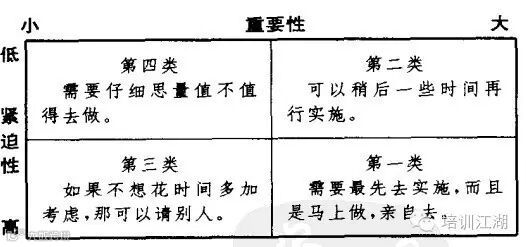 小 重要性 大
低
紧
迫
性
高
第四类
需要仔细思量值不值
得去做。
第二类
可以稍后一些时间再
行实施。
第三类
如果不想花时间多加
考虑,那可以请别人。
第一类
需要最先去实施,而且
是马上做,亲自去。
培训江湖